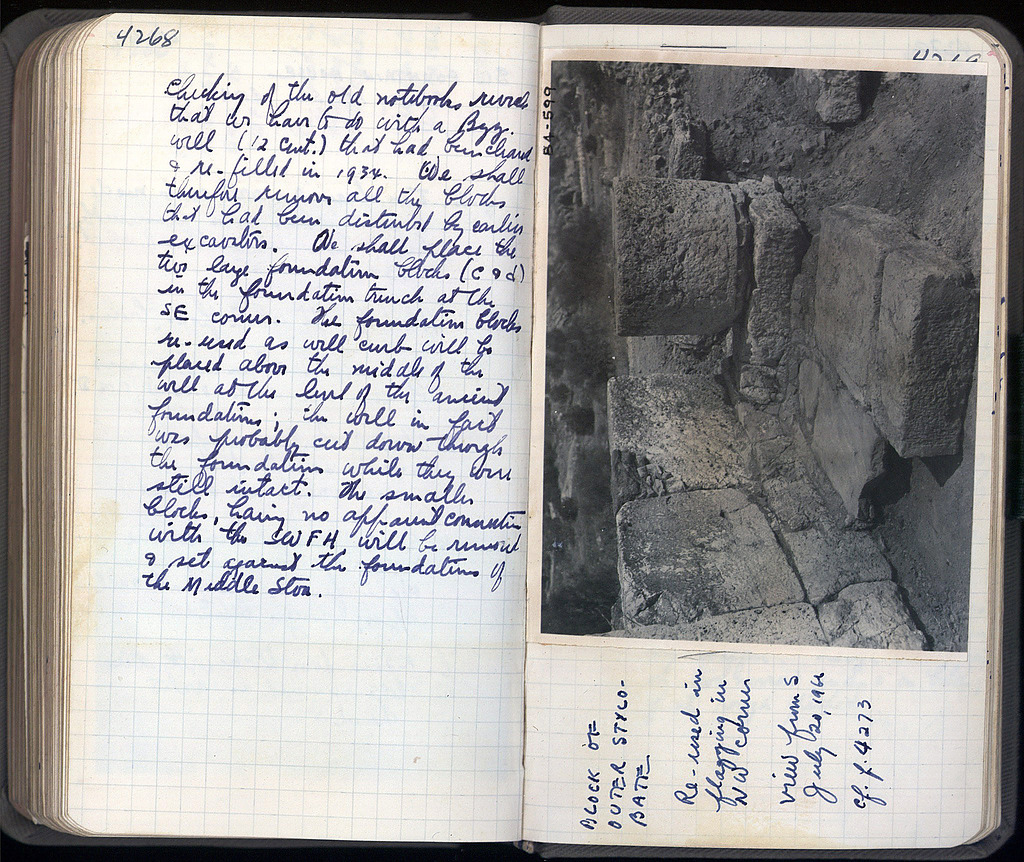 4268
Checking of the old notebooks reveals
that we have to do with a Byz.
well (12 cent.) that had been cleared
& re-filled in 1934. We shall
therefore remove all the blocks
that had been disturbed by earlier
excavators. We shall place the
two large foundation blocks (c & d)
in the foundation trench at the
SE corner. The foundation blocks
re-used as well curb will be
placed above the middle of the
well at the level of the ancient
foundations; the well in fact
was probably cut down through
the foundations while they were
still intact. The smaller
blocks, having no apparent connection
with the SWFH will be removed
& set against the foundations of
the Middle Stoa.
4269
84-599
BLOCK OF
OUTER STYLO-
BATE
Re-used in
flagging in
NW corner
View from S
July 20, 1966
cf. p. 4273